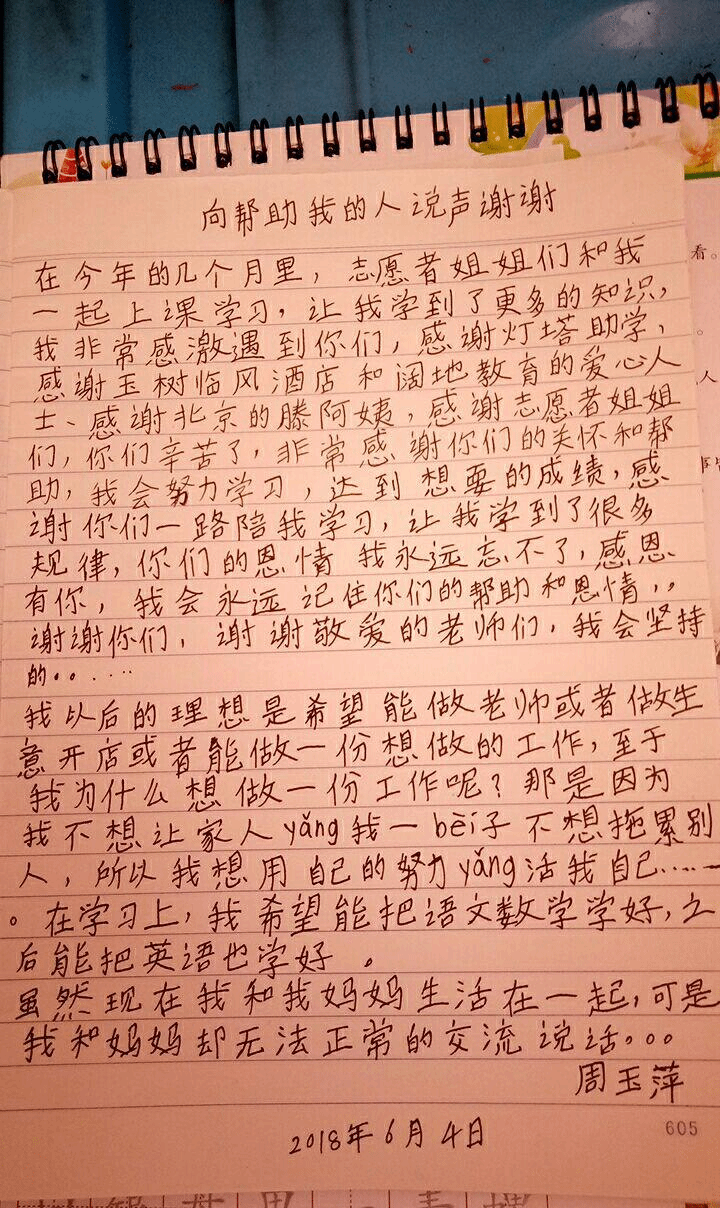 向帮助我的人说声谢谢
在今年的几个月里，志愿者姐姐们和我
一起上课学习，让我学到了更多的知识，
我非常感激遇到你们，感谢灯塔助学、
感谢玉树临风酒店和阔地教育的爱心人
士、感谢北京的滕阿姨，感谢志愿者姐姐
们，你们辛苦了，非常感谢你们的关怀和帮
助，我会努力学习，达到想要的成绩，感
谢你们一路陪我学习，让我学到了很多
规律，你们的恩情我永远忘不了，感恩
有你，我会永远记住你们的帮助和恩情，，
谢谢你们，谢谢敬爱的老师们，我会坚持
的。。……
我以后的理想是希望能做老师或者做生
意开店或者能做一份想做的工作，至于
我为什么想做一份工作呢？那是因为
我不想让家人yǎng我一bèi子不想拖累别
人，所以我想用自己的努力yǎng活我自己……
。在学习上，我希望能把语文数学学好，之
后能把英语也学好。
虽然现在我和我妈妈生活在一起，可是
我和妈妈却无法正常的交流说话。。。
周玉萍
2018年6月4日
605
看。
人